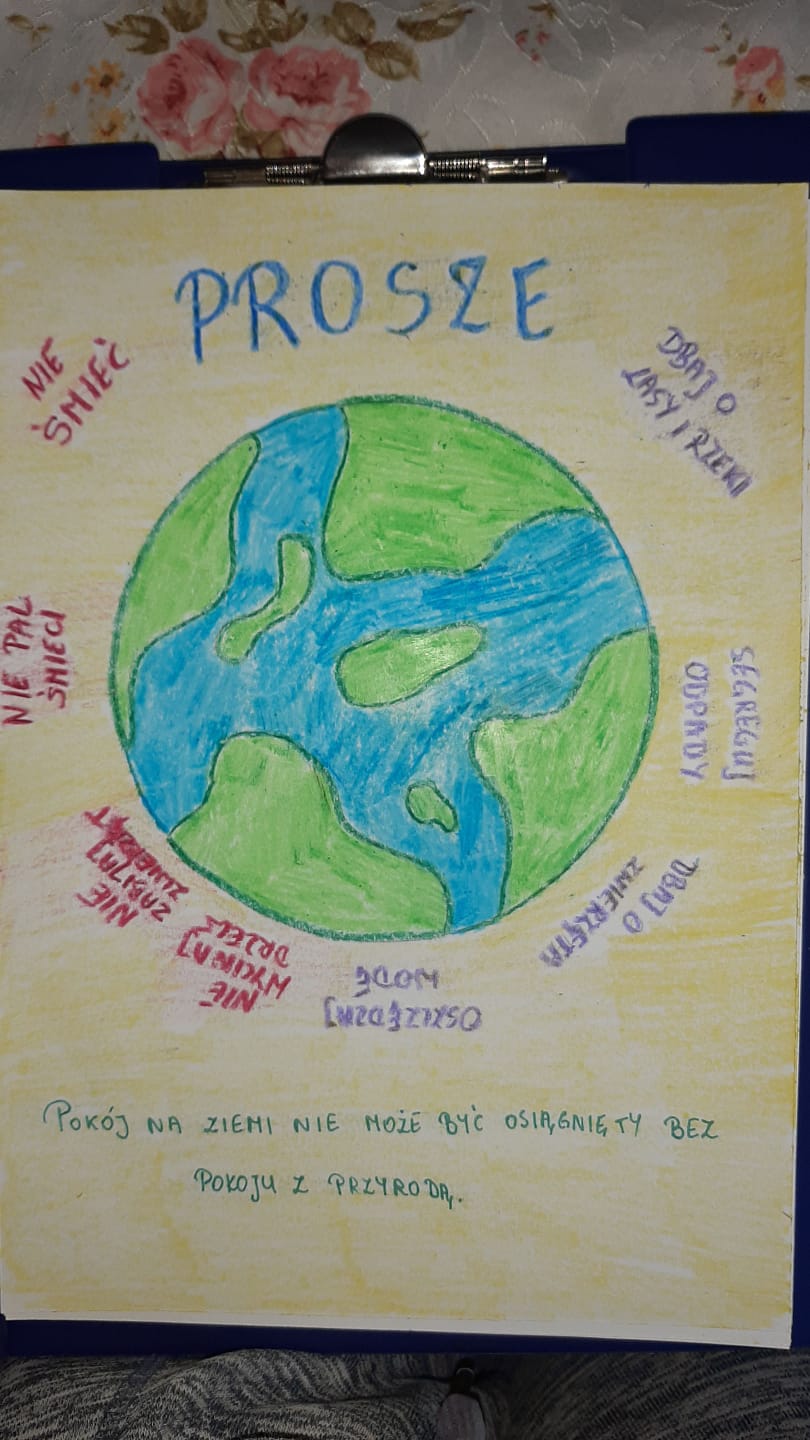 PROSZE
NIE
ŚMIEĆ
DBAJ O
LASY I RZEKI
SEGREGUJ
ODPADY
DBAJ O
ZWIERZĘTA
OSZCZĘDZAJ
WODĘ
NIE
WYCINAJ
DRZEW
NIE
ZABIJAJ
ZWIERZĄT
NIE PAL
ŚMIECI
POKÓJ NA ZIEMI NIE MOŻE BYĆ OSIĄGNIĘTY BEZ
POKOJU Z PRZYRODĄ.